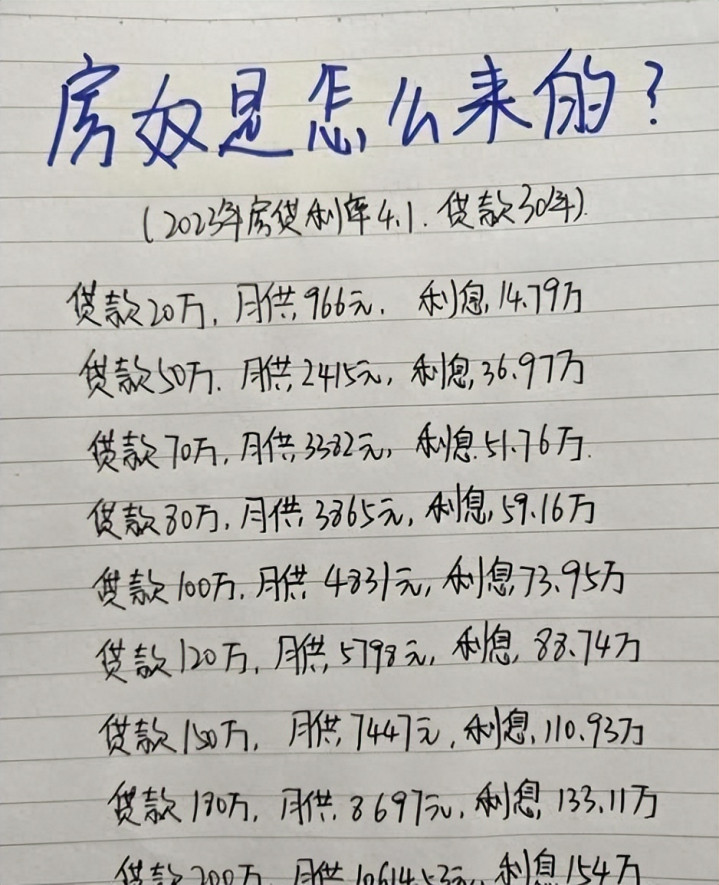 房奴是怎么来的?
(2023年房贷利率4.1.贷款30年).
贷款20万,月供,966元,利息,14.79万
贷款50万.月供,2415元,利息,36.97万
贷款70万,月供,3382元,利息.51.76万.
贷款80万,月供,3865元,利息,59.16万
贷款100万,月供 4831元,利息,73.95万
贷款120万,月供,5798元,利息,88.74万
贷款150万,月供,7447元,利息,110.93万
贷款180万,月供.8697元,利息,133.11万
贷款200万,月供 10614.53元,利息154万